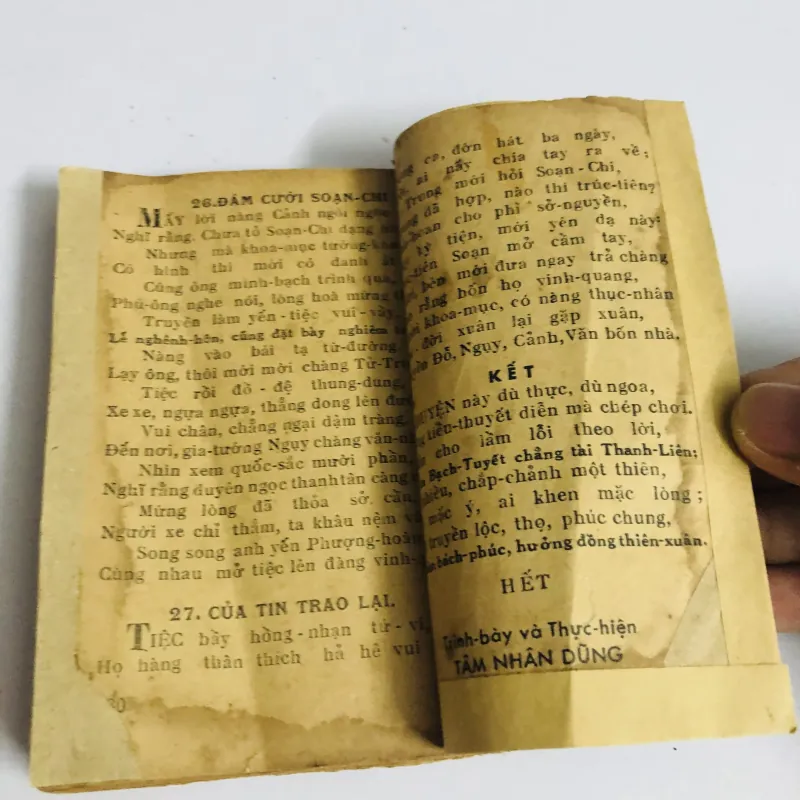 26. ĐÁM CƯỚI SOẠN-CHI
MẤY lời nàng Cảnh ngỏi
Nghĩ rằng. Chưa tỏ Soạn-Chi dạng
Nhưng mà khoa-mục tướng
Có hình thì mới có danh
Cũng ông minh-bạch trình qua,
Phú-ông nghe nói, lòng hoà mừng
Truyền làm yến-tiệc vui-vầy
Lễ nghênh-hôn, cũng đặt bày nghiêm
Nàng vào bái tạ từ-đường,
Lạy ông, thôi mới mời chàng Tử-Tr
Tiệc rồi đò-đệ thung-dung,
Xe xe, ngựa ngựa, thẳng dong lên đư
Vui chân, chẳng ngại dậm tràng,
Đến nơi, gia-tướng Ngụy chàng
Nhìn xem quốc-sắc mười phần,
Nghĩ rằng duyên ngọc thanh tân càng
Mừng lòng đã thỏa sở cầu,
Người xe chỉ thắm, ta khâu nệm
Song song anh yến Phượng-hoàng
Cùng nhau mở tiệc lên đàng vinh
27. CỦA TIN TRAO LẠI.
TIỆC bầy hồng-nhạn tứ-vi,
Họ hàng thân thích hả hê vui
80
ca, đờn hát ba ngày,
ai nấy chia tay ra về;
Trung mới hỏi Soạn-Chi,
đã hợp, nào thì trúc-tiên?
đoan cho phỉ sở-nguyền,
kỷ tiện, mới yên dạ này:
Soạn mở cầm tay,
bèn mới đưa ngay trả chàng
rằng bốn họ vinh-quang,
khoa-mục, có nàng thục-nhân
đời xuân lại gặp xuân,
Đỗ, Ngụy, Cảnh, Văn bốn nhà.
KẾT
UYỆN này dù thực, dù ngoa,
tiểu-thuyết diễn mà chép chơi.
cho lầm lỗi theo lời,
Bạch-Tuyết chẳng tài Thanh-Liên;
chắp-chảnh một thiên,
mặc ý, ai khen mặc lòng;
truyền lộc, thọ, phúc chung,
bách-phúc, hưởng đồng thiên-xuân.
HẾT
Trình-bày và Thực-hiện
TÂM NHÂN DŨNG